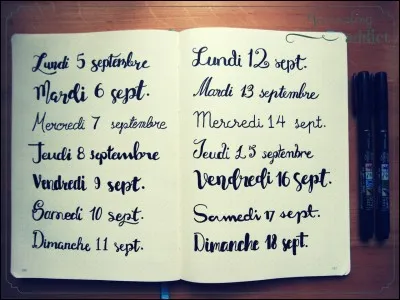 Lundi 5 septembre
Mardi 6 sept.
Mercredi 7 septembre
Jeudi 8 septembre
Vendredi 9 sept.
Samedi 10 sept.
Dimanche 11 sept.
Lundi 12 sept.
Mardi 13 septembre
Mercredi 14 sept.
Jeudi 15 septembre
Vendredi 16 sept.
Samedi 17 sept.
Dimanche 18 sept.
addict